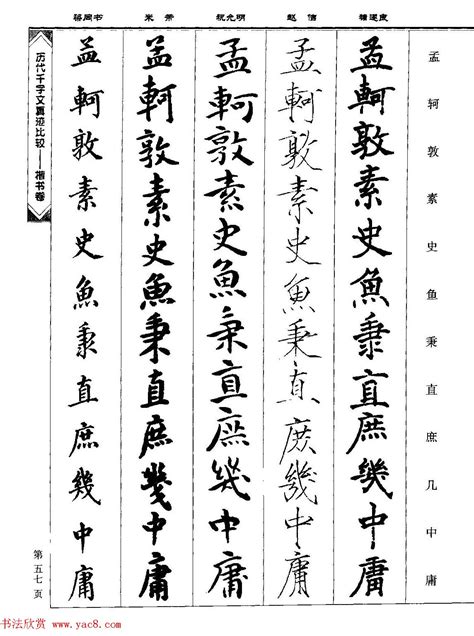 孟轲敦素史鱼秉直庶几中庸
褚遂良
孟軻敦素史魚秉直庶幾中庸
赵佶
孟軻敦素史魚秉直庶幾中庸
祝允明
孟軻敦素史魚秉直庶幾中庸
米芾
孟軻敦素史魚秉直庶幾中庸
孟軻敦素史魚秉直庶幾中庸
历代千字文真迹比较——楷书卷
第五七页
书法欣赏
www.yac8.com